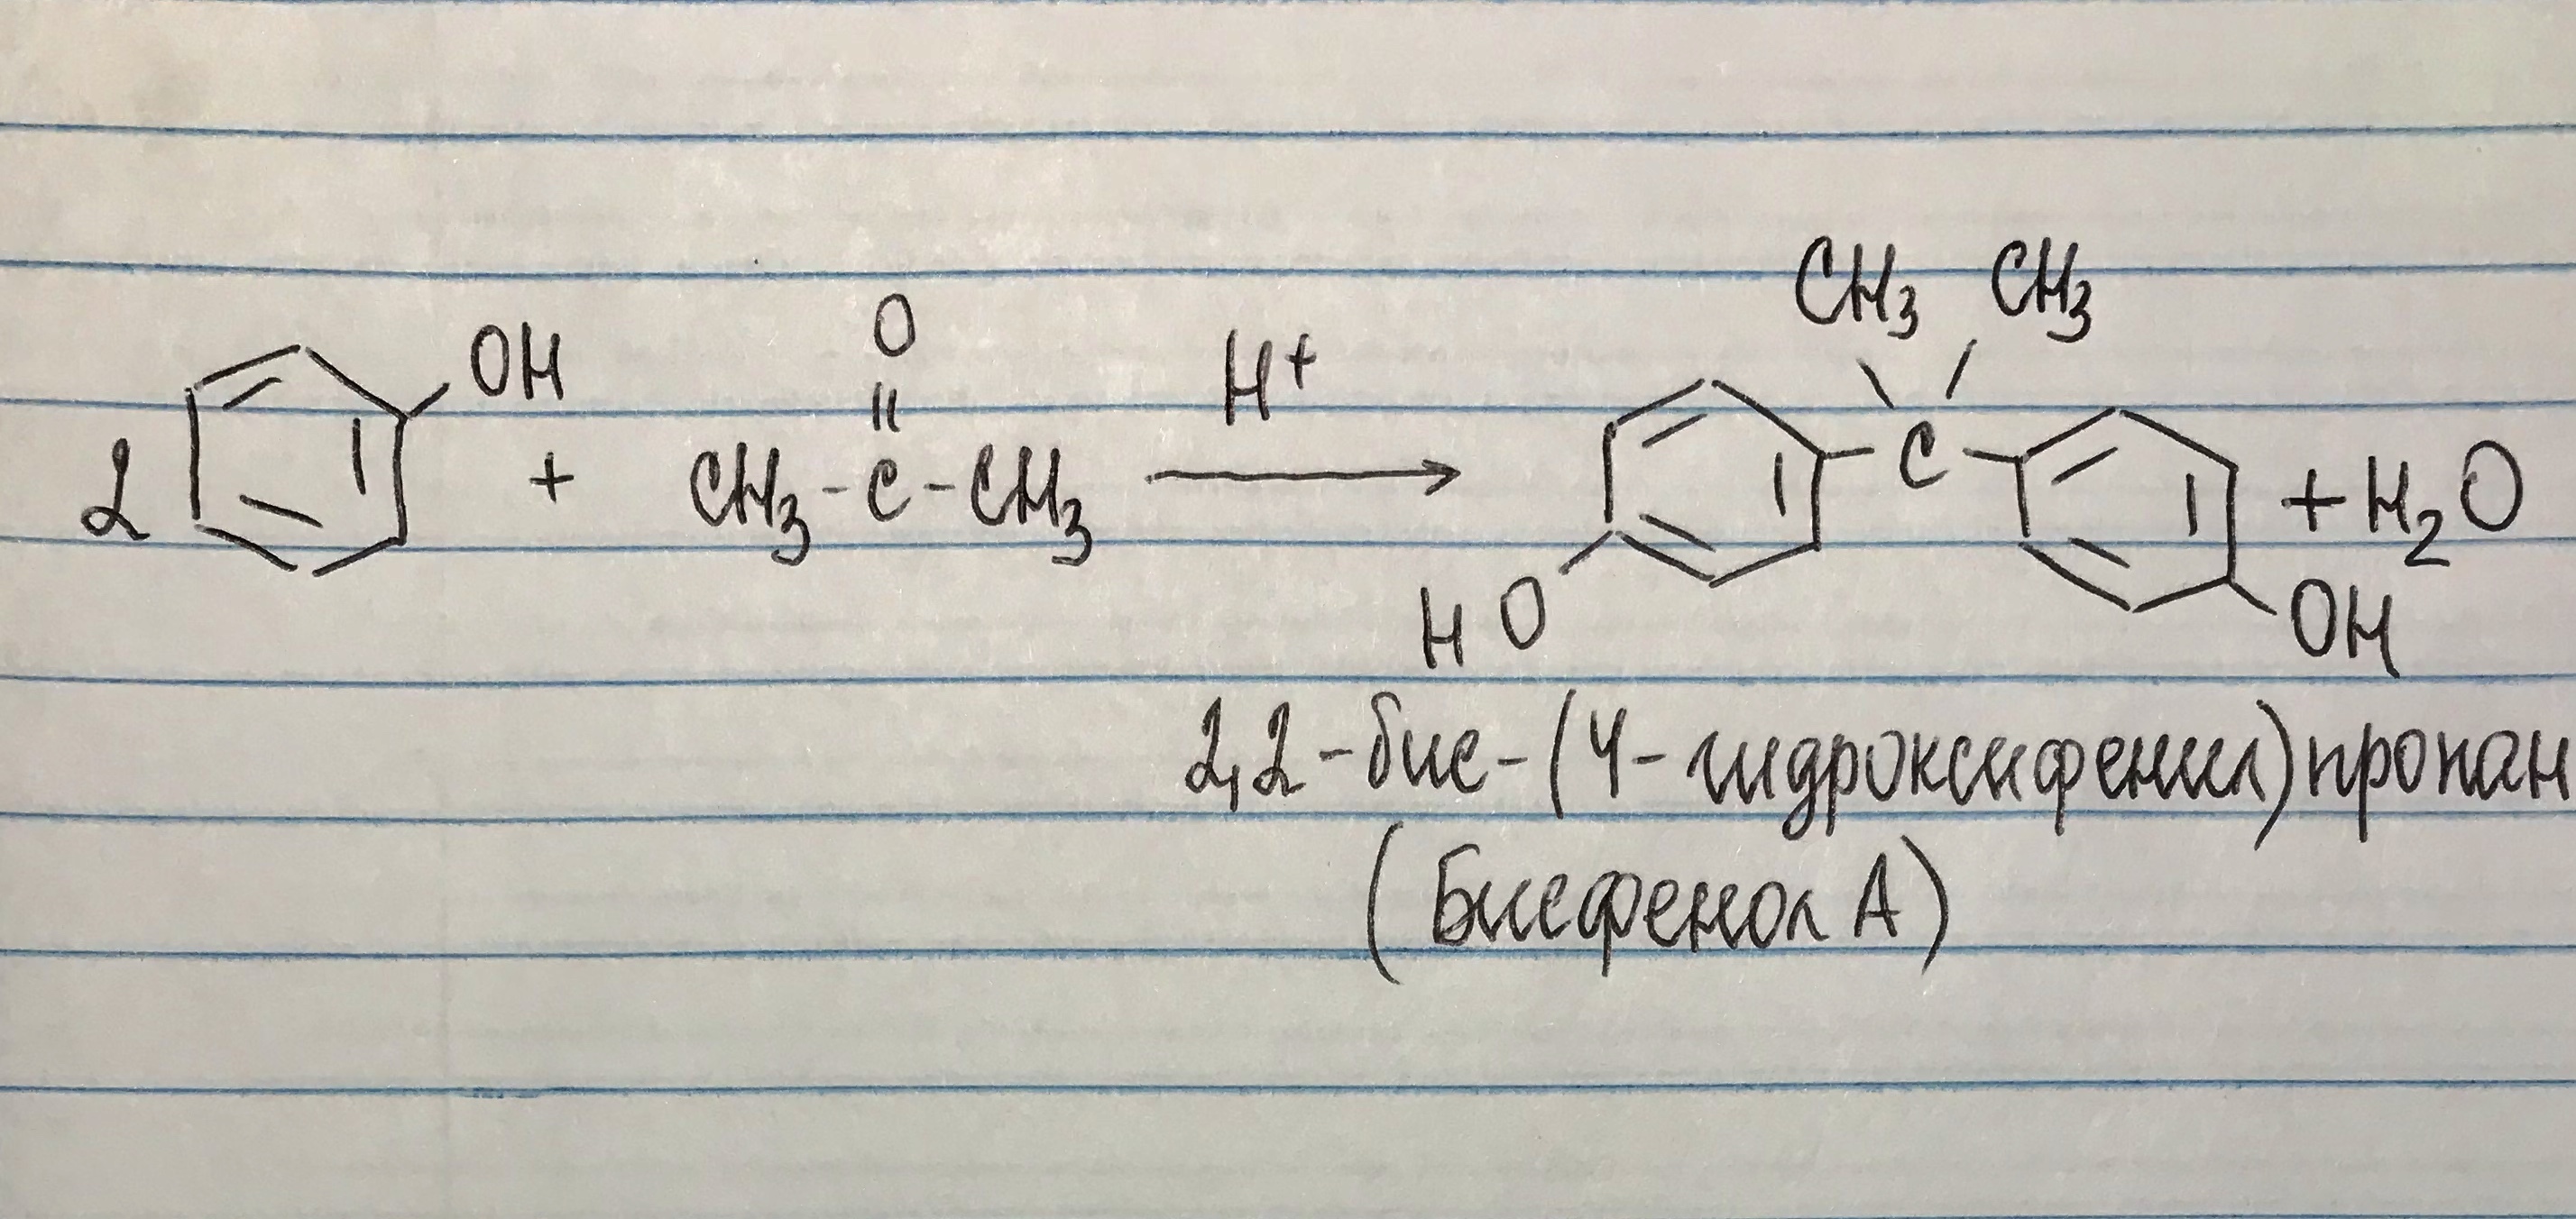 2 OH + CH3-C-CH3 H+ → CH3 CH3 C + H2O
O
HO OH
2,2-бис-(4-гидроксифенил)пропан
(Бисфенол А)